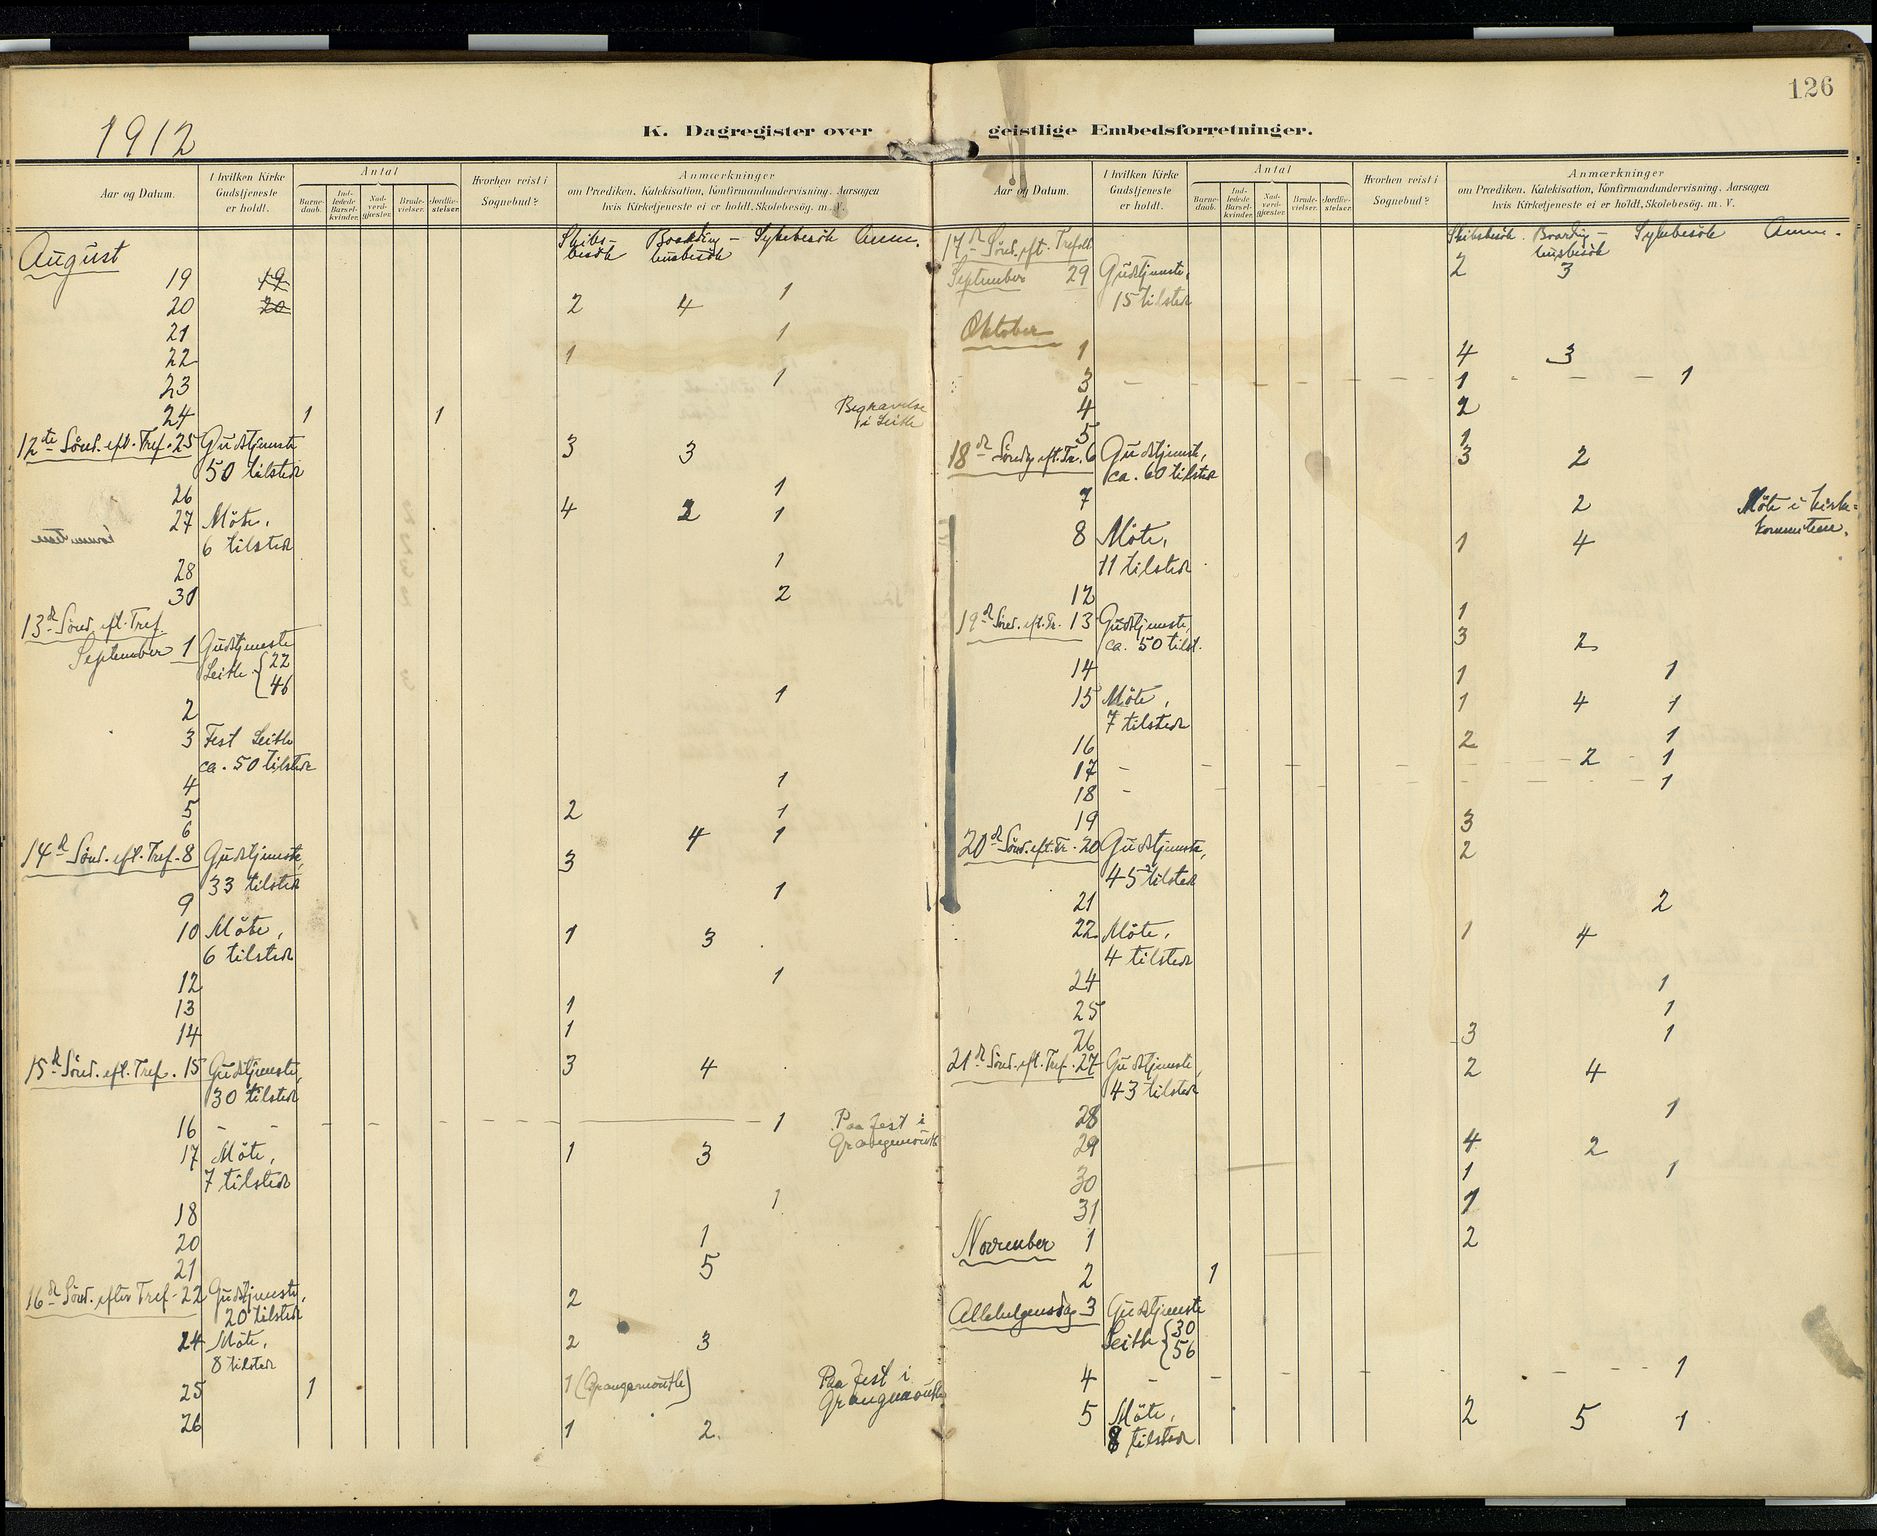 126
1912
K. Dagregister over geistlige Embedsforretninger.
Aar og Datum.
I hvilken Kirke Gudstjeneste er holdt.
Antal
Barnedaab.
Indledede Barselkvinder.
Nadverdgjæster.
Brudevielser.
Jordfæstelser.
Hvorhen reist i Sognebud?
Anmærkninger
om Prædiken, Katekisation, Konfirmandundervisning. Aarsagen
hvis Kirketjeneste ei er holdt. Skolebesög. m. V.
August Skibsbesök Boardinghusbesök Sykebesök Anm.
19 19 1
20 20 2 4
21 1
22 1
23 1
24 1 1 Begravelse i Leith
12te Sönd. eft. Tref. 25 Gudstjeneste 3 3
50 tilsted
26 1
27 Möte, 4 2 1
6 tilsted
28 1
30 2
13d Sönd. eft. Tref.
September 1 Gudstjeneste
Leith {22
46
2 1
3 Fest Leith
ca. 50 tilsted
4 1
5 2 1
6 4 1
14d Sönd. eft. Tref. 8 Gudstjeneste, 3
33 tilsted
9 1
10 Möte, 1 3
6 tilsted
12 1
13 1
14 1
15d Sönd. eft. Tref. 15 Gudstjeneste, 3 4
30 tilsted
16 - - - - - - - - 1 Paa fest i Grangemouth
17 Möte, 1 3
7 tilsted
18 1
20 1
21 5
16d Sönd. efter Tref. 22 Gudstjeneste, 2
20 tilsted
24 Möte, 2 3
8 tilsted
25 1 1 (Grangemouth) Paa fest i Grangemouth
26 1 2
Aar og Datum.
I hvilken Kirke Gudstjeneste er holdt.
Antal
Barnedaab.
Indledede Barselkvinder.
Nadverdgjæster.
Brudevielser.
Jordfæstelser.
Hvorhen reist i Sognebud?
Anmærkninger
om Prædiken, Katekisation, Konfirmandundervisning. Aarsagen
hvis Kirketjeneste ei er holdt, Skolebesög. m. V.
17d Sönd. eft. Trefold Skibsbesök Boardinghusbesök Sykebesök Anm.
September 29 Gudstjeneste, 2 3
15 tilsted
Oktober
1 4 3
3 - - - - - - - 1 - - - 1
4 2
5 1
18d Söndg eft. Tr. 6 Gudstjeneste, 3 2
ca. 60 tilsted
7 2 Möte i kirkekommiteen.
8 Möte, 1 4
11 tilsted
12 1
19d Sönd. eft. Tr. 13 Gudstjeneste, 3 2
ca. 50 tilst.
14 1 1
15 Möte, 1 4 1
7 tilsted
16 2 1
17 - - - - - - - 2 - 1
18 - 1
19 3
20d Sönd. eft. Tr. 20 Gudstjeneste, 2
45 tilsted
21 2
22 Möte, 1 4
4 tilsted
24 1
25 1
26 3 1
21d Sönd. eft. Tref. 27 Gudstjeneste, 2 4
43 tilsted
28 1
29 4 2
30 1 1
31 1
November 1 2
2 1
Allehelgensdag 3 Gudstjeneste
Leith {30
56
4 - - - - - - - - 1
5 Möte, 2 5 1
8 tilsted